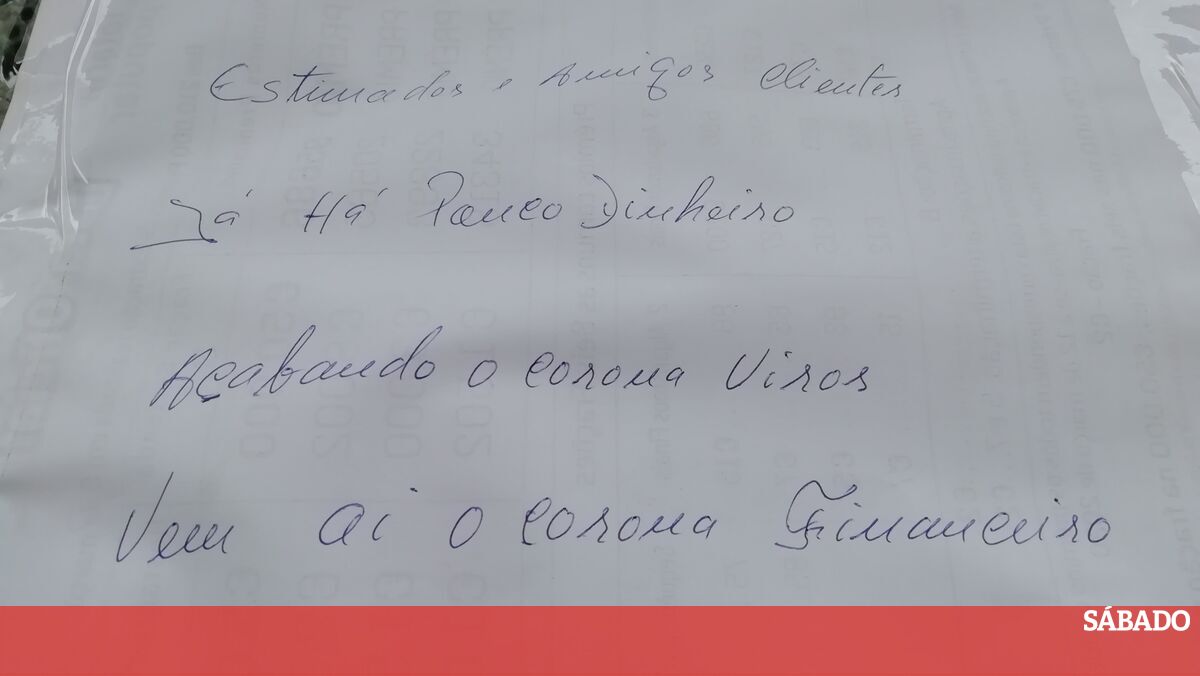 Estimados e Amigos Clientes
Já Há Pouco Dinheiro
Açabando o corona Viros
Vem ai o corona Financeiro
SÁBADO